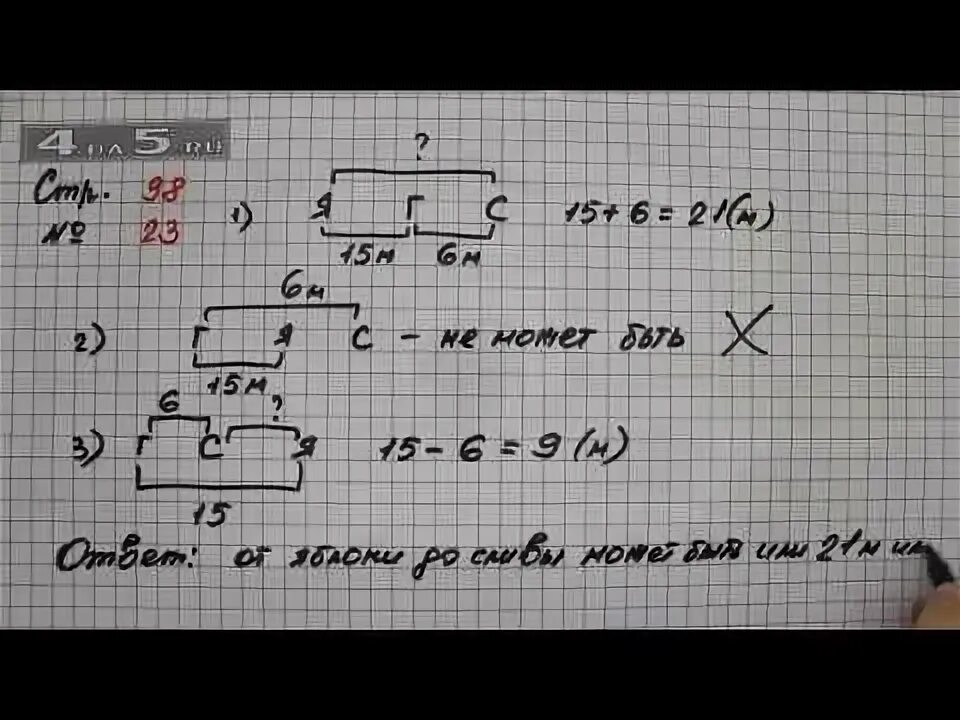 4 на 5.ru
Стр. 98
№ 23
1)
?
Я Г С
15м 6м
15 + 6 = 21 (м)
6м
2) Г Я С – не может быть X
15м
6 ?
3) Г С Я 15 – 6 = 9 (м)
15
Ответ: от яблони до сливы может быть или 21м ил